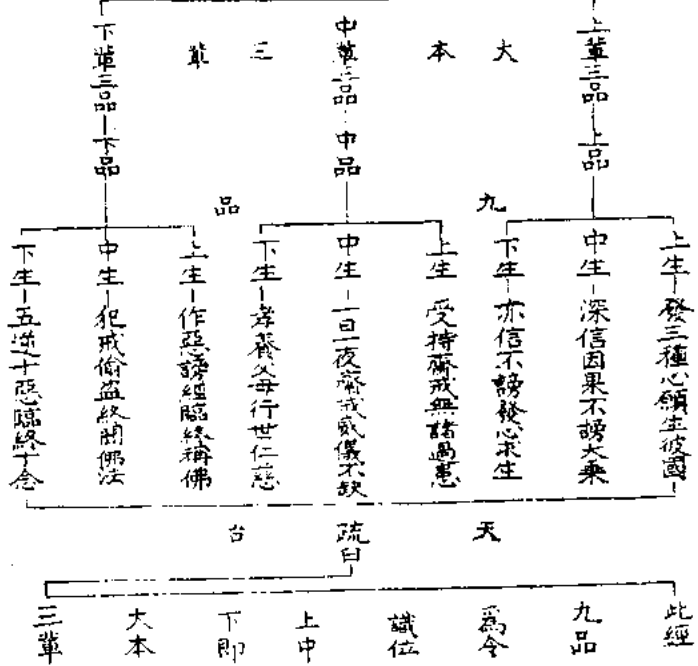 大本三輩
上輩三品
上品
中輩三品
中品
下輩三品
下品
九品
上生
發三種心願生彼國
中生
深信因果不謗大乘
下生
亦信不謗發心求生
上生
受持齋戒無諸過患
中生
一日一夜齋戒威儀不缺
下生
孝養父母行世仁慈
上生
作惡謗經臨終稱佛
中生
犯戒偷盜終聞佛法
下生
五逆十惡臨終十念
天台
疏曰
此經
九品
為令
識位
上中
下即
大本
三輩